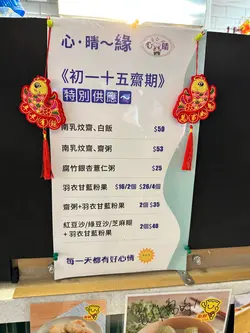 心·晴～緣
心晴
《初一十五齋期》
特別供應
南乳炆齋、白飯 $59
南乳炆齋、齋粥 $53
腐竹銀杏薏仁粥 $25
羽衣甘藍粉果 $16/2個 $28/4個
齋粥+羽衣甘藍粉果 2個 $35
紅豆沙/綠豆沙/芝麻糊
+羽衣甘藍粉果 2個$40
每一天都有好心情